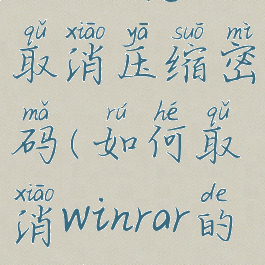 qǔ xiāo yā suō mì
取消压缩密
mǎ rú hé qǔ
码(如何取
xiāo de
消winrar的